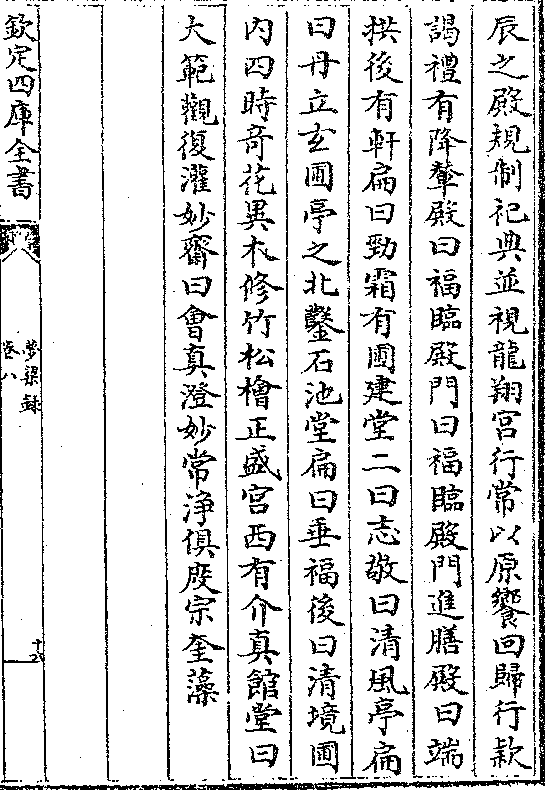 辰之殿規制祀典並視龍翔宮行常以原饗回歸行款
謁禮有降輦殿曰福臨殿門曰福臨殿門進膳殿曰端
拱後有軒扁曰勁霜有圃建堂二曰志敬曰清風亭扁
曰丹立玄圃亭之北鑿石池堂扁曰垂福後曰清境圃
内四時奇花異木修竹松檜正盛宮西有介真館堂曰
大範觀復濯妙齋曰會真澄妙常净俱度宗奎藻
欽定四庫全書
夢粱錄
卷八
十六